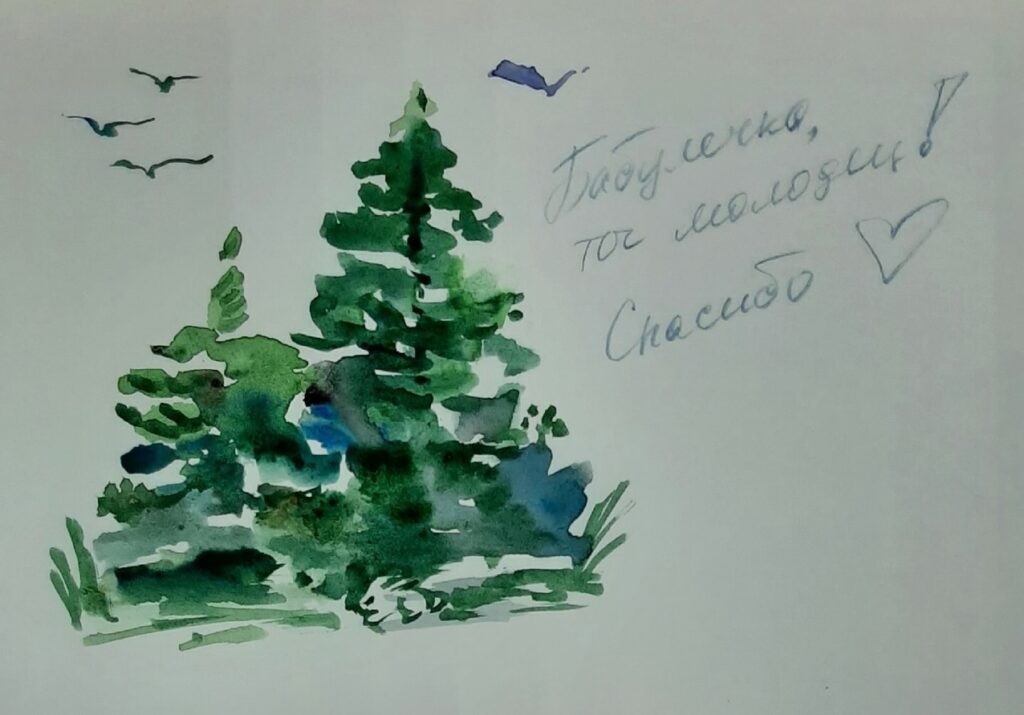 Бабулечка,
точ молодец!
Спасибо